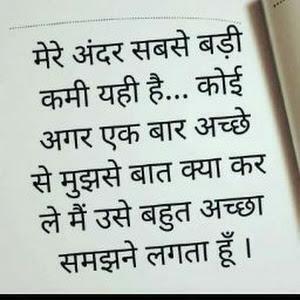 मेरे अंदर सबसे बड़ी
कमी यही है... कोई
अगर एक बार अच्छे
से मुझसे बात क्या कर
ले मैं उसे बहुत अच्छा
समझने लगता हूँ ।